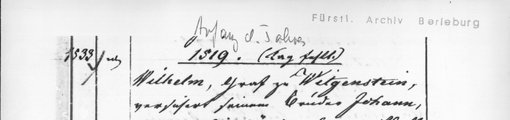 Anfang d. Jahres
Fürstl. Archiv Berleburg
1533
1519. (Tag fehlt.)
Wilhelm, Graf zu Witgenstein,
versichert seinem Bruder Johann,